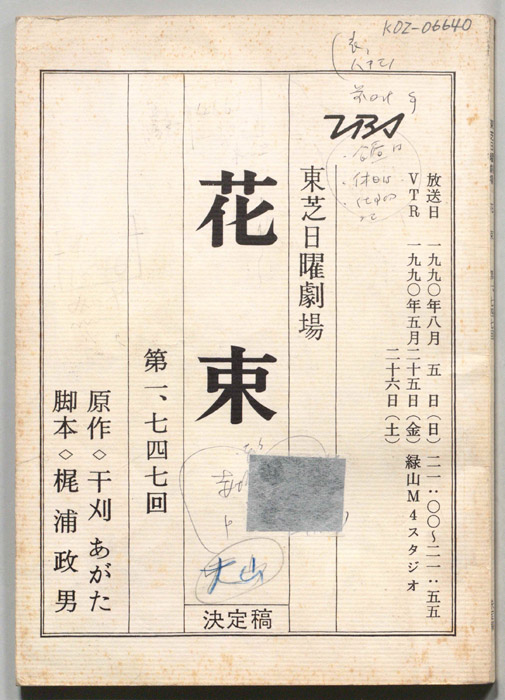 KDZ-06640
TBS
放送日 一九九〇年八月 五 日（日）二一：〇〇〜二一：五五
VTR 一九九〇年五月二十五日（金）緑山M4スタジオ
二十六日（土）
東芝日曜劇場
花束
大山
決定稿
第一、七四七回
原作◇干刈 あがた
脚本◇梶浦政男